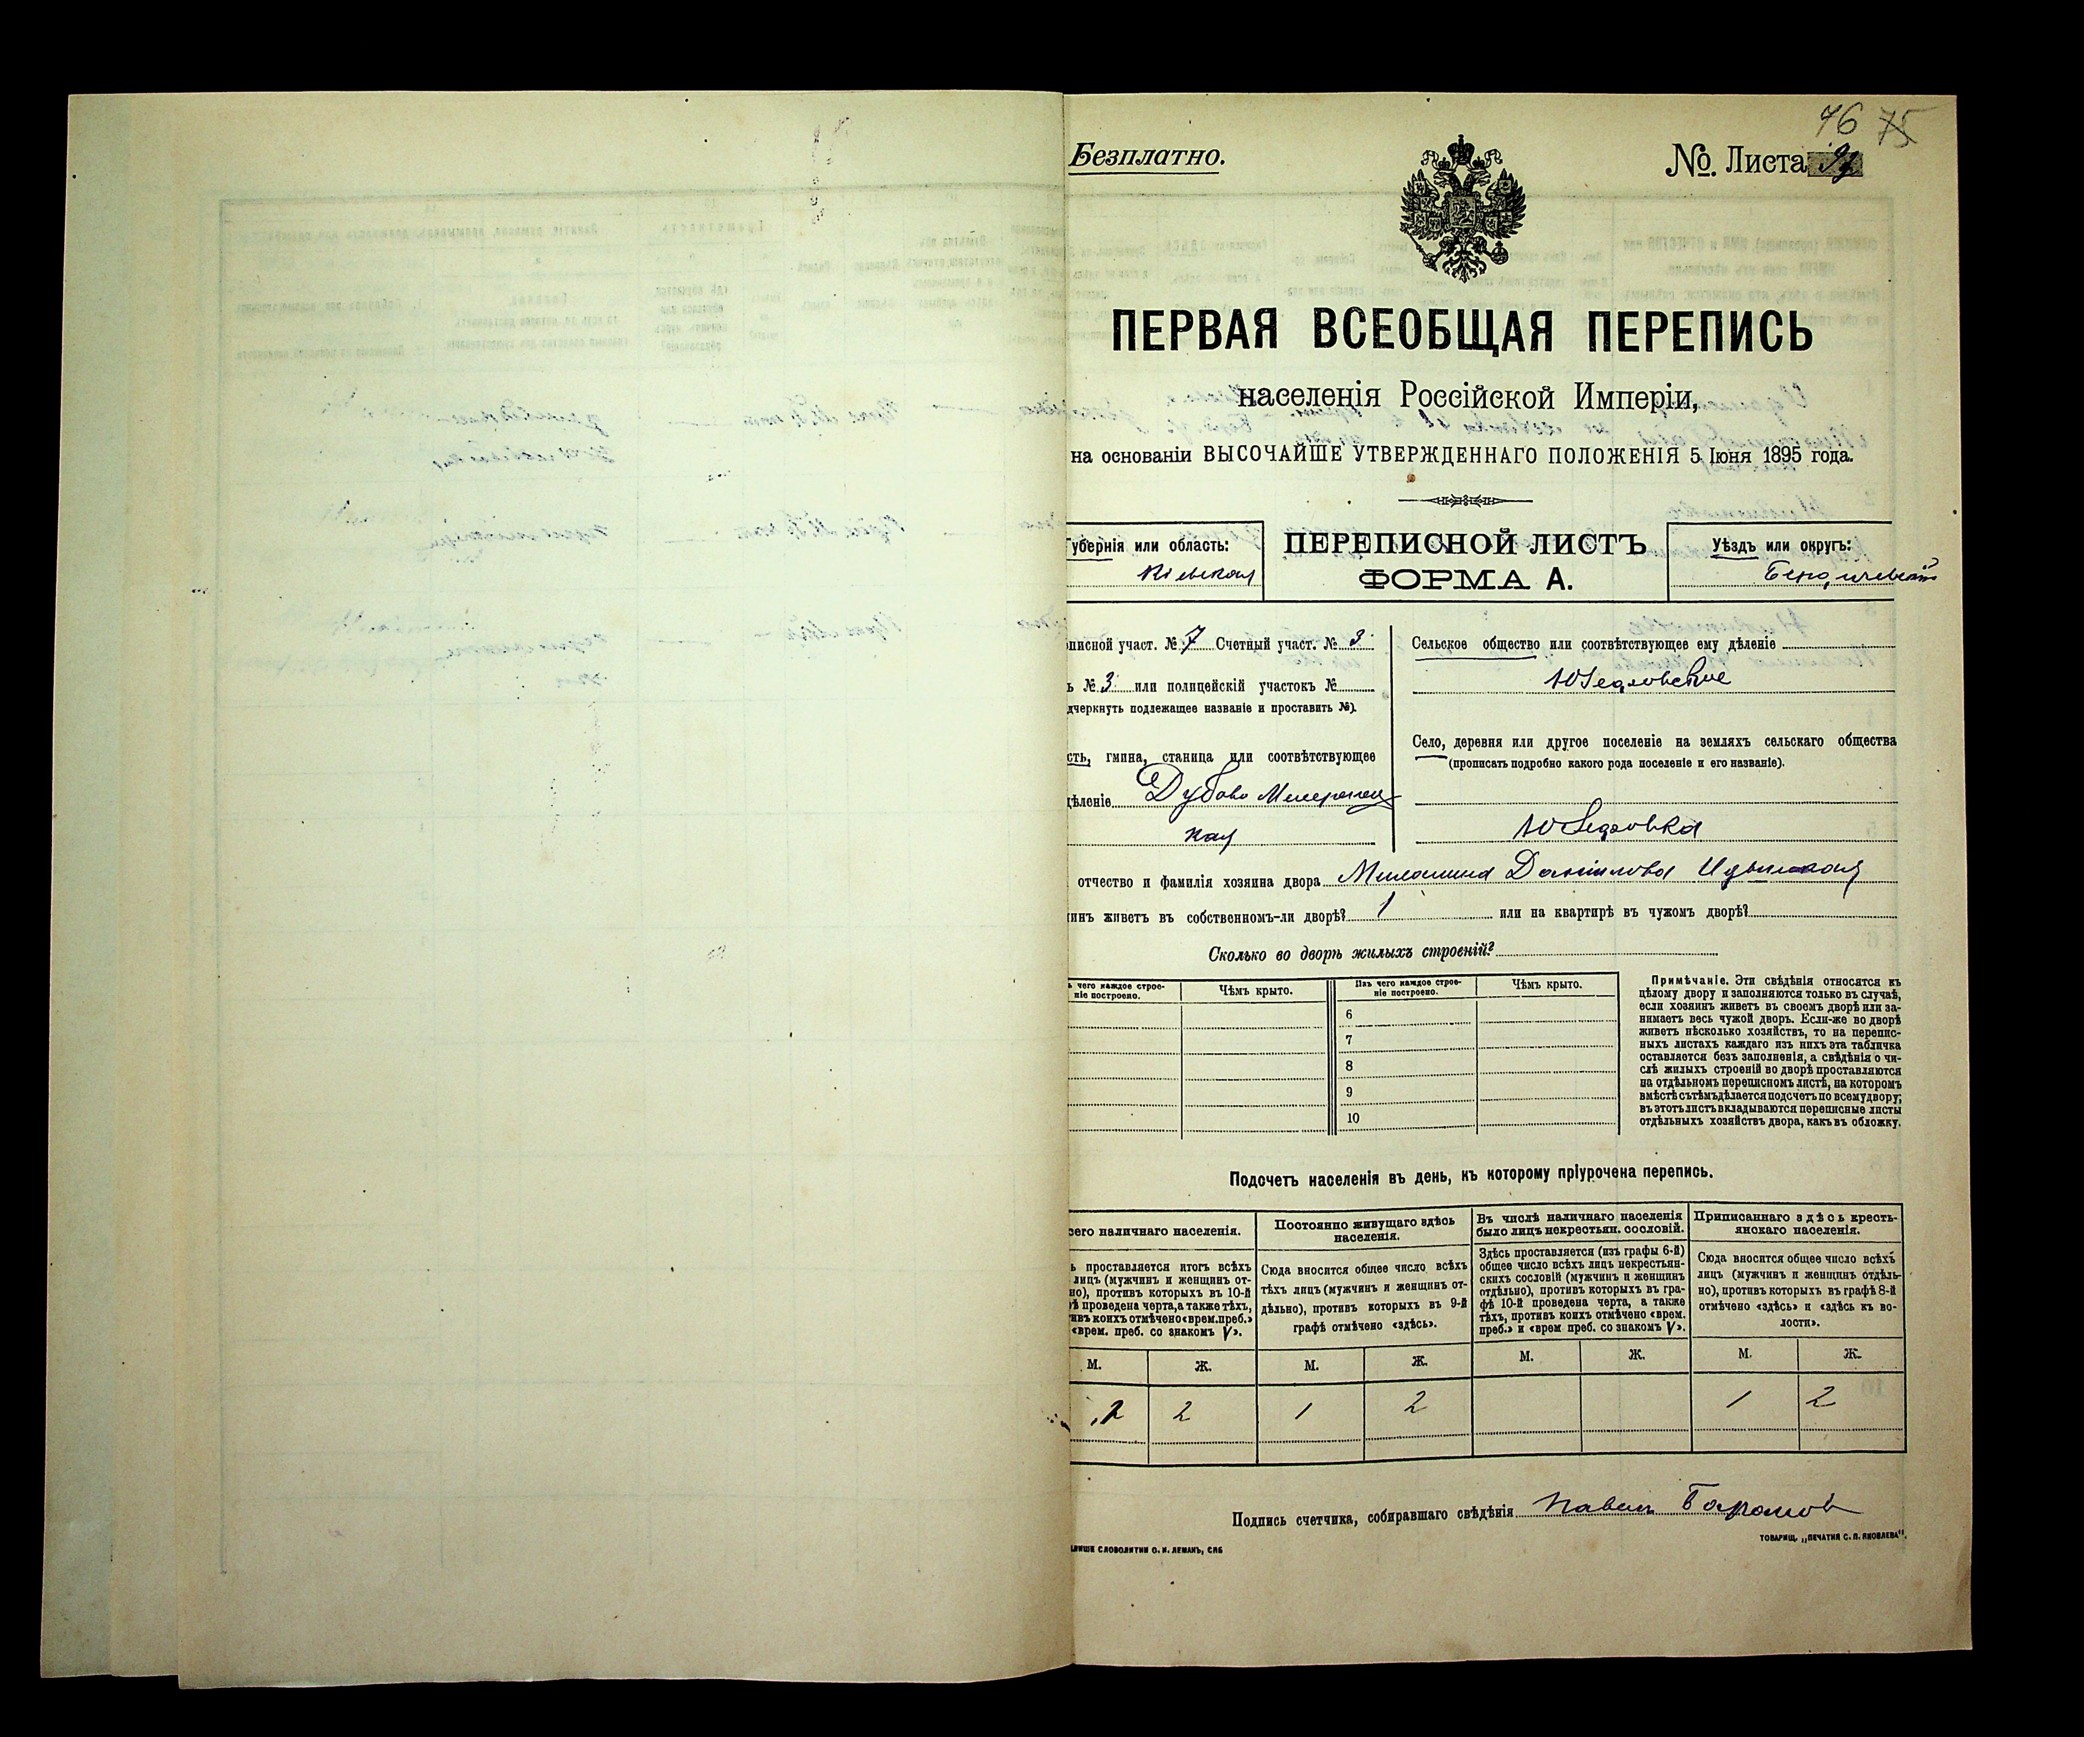 76 75
Безплатно.
№. Листа
ПЕРВАЯ ВСЕОБЩАЯ ПЕРЕПИСЬ
населенія Россійской Имперіи,
на основаніи ВЫСОЧАЙШЕ УТВЕРЖДЕННАГО ПОЛОЖЕНІЯ 5 Іюня 1895 года.
Губернія или область:
Кіевская
ПЕРЕПИСНОЙ ЛИСТЪ
ФОРМА А.
Уѣздъ или округъ:
Бердичевскій
писной участ. № 7 Счетный участ. № 3.
ь № 3 или полицейскій участокъ №
дчеркнуть подлежащее названіе и проставить №).
сть, гмина, станица или соотвѣтствующее
дѣленіе Дубово Махаринец
кая
Сельское общество или соотвѣтствующее ему дѣленіе
Село, деревня или другое поселеніе на земляхъ сельскаго общества
(прописать подробно какого рода поселеніе и его названіе).
отчество и фамилія хозяина двора Данилова
инъ живетъ въ собственномъ-ли дворѣ? 1 или на квартирѣ въ чужомъ дворѣ?
Сколько во дворѣ жилыхъ строеній?
ъ чего каждое строе-
ніе построено.
Чѣмъ крыто.
Изъ чего каждое строе-
ніе построено.
Чѣмъ крыто.
6
7
8
9
10
Примѣчаніе. Эти свѣдѣнія относятся къ
цѣлому двору и заполняются только въ случаѣ,
если хозяинъ живетъ въ своемъ дворѣ или за-
нимаетъ весь чужой дворъ. Если-же во дворѣ
живетъ нѣсколько хозяйствъ, то на перепис-
ныхъ листахъ каждаго изъ нихъ эта табличка
оставляется безъ заполненія, а свѣдѣнія о чи-
слѣ жилыхъ строеній во дворѣ проставляются
на отдѣльномъ переписномъ листѣ, на которомъ
вмѣстѣ съ тѣмъ дѣлается подсчетъ по всему двору;
въ этотъ листъ вкладываются переписные листы
отдѣльныхъ хозяйствъ двора, какъ въ обложку.
Подсчетъ населенія въ день, къ которому пріурочена перепись.
сего наличнаго населенія.
ь проставляется итогъ всѣхъ
лицъ (мужчинъ и женщинъ от-
но), противъ которыхъ въ 10-й
ѣ проведена черта, а также тѣхъ,
ивъ коихъ отмѣчено «врем. преб.»
«врем. преб. со знакомъ V».
Постоянно живущаго здѣсь
населенія.
Сюда вносится общее число всѣхъ
тѣхъ лицъ (мужчинъ и женщинъ от-
дѣльно), противъ которыхъ въ 9-й
графѣ отмѣчено «здѣсь».
Въ числѣ наличнаго населенія
было лицъ некрестьян. сословій.
Здѣсь проставляется (изъ графы 6-й)
общее число всѣхъ лицъ некрестьян-
скихъ сословій (мужчинъ и женщинъ
отдѣльно), противъ которыхъ въ гра-
фѣ 10-й проведена черта, а также
тѣхъ, противъ коихъ отмѣчено «врем.
преб.» и «врем преб. со знакомъ V».
Приписаннаго здѣсь кресть-
янскаго населенія.
Сюда вносится общее число всѣхъ
лицъ (мужчинъ и женщинъ отдѣль-
но), противъ которыхъ въ графѣ 8-й
отмѣчено «здѣсь» и «здѣсь къ во-
лости».
М. Ж. М. Ж. М. Ж. М. Ж.
2 2 1 2 1 2
Подпись счетчика, собиравшаго свѣдѣнія Павелъ
ТОВАРИЩ. „ПЕЧАТНЯ С. П. ЯКОВЛЕВА“.
ЛИЩЕ СЛОВОЛИТНИ О. И. ЛЕМАНЪ, СПБ